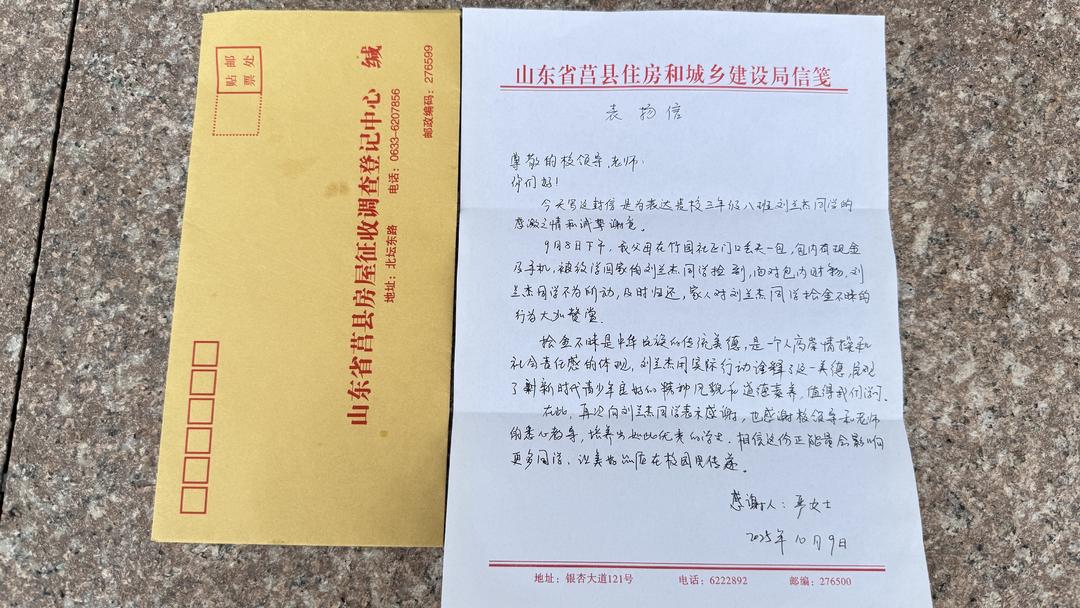 贴 邮
票 处
山东省莒县房屋征收调查登记中心 缄
地址：北坛东路 电话：0633-6207856
邮政编码：276599
山东省莒县住房和城乡建设局信笺
表扬信
尊敬的校领导、老师：
你们好！
今天写这封信是为表达贵校三年级八班刘兰杰同学的
感激之情和诚挚谢意。
9月8日下午，我父母在竹园社区门口丢失一包，包内有现金
及手机，被放学回家的刘兰杰同学捡到，面对包内财物，刘
兰杰同学不为所动，及时归还，家人对刘兰杰同学拾金不昧的
行为大加赞赏。
拾金不昧是中华民族的传统美德，是一个人高尚情操和
社会责任感的体现，刘兰杰用实际行动诠释了这一美德，展现
了新时代青少年良好的精神风貌和道德素养，值得我们学习。
在此，再次向刘兰杰同学表示感谢，也感谢校领导和老师
的悉心教导，培养出如此优秀的学生。相信这份正能量会影响
更多同学，让美好品质在校园里传递。
感谢人： 女士
2025年10月9日
地址：银杏大道121号 电话：6222892 邮编：276500